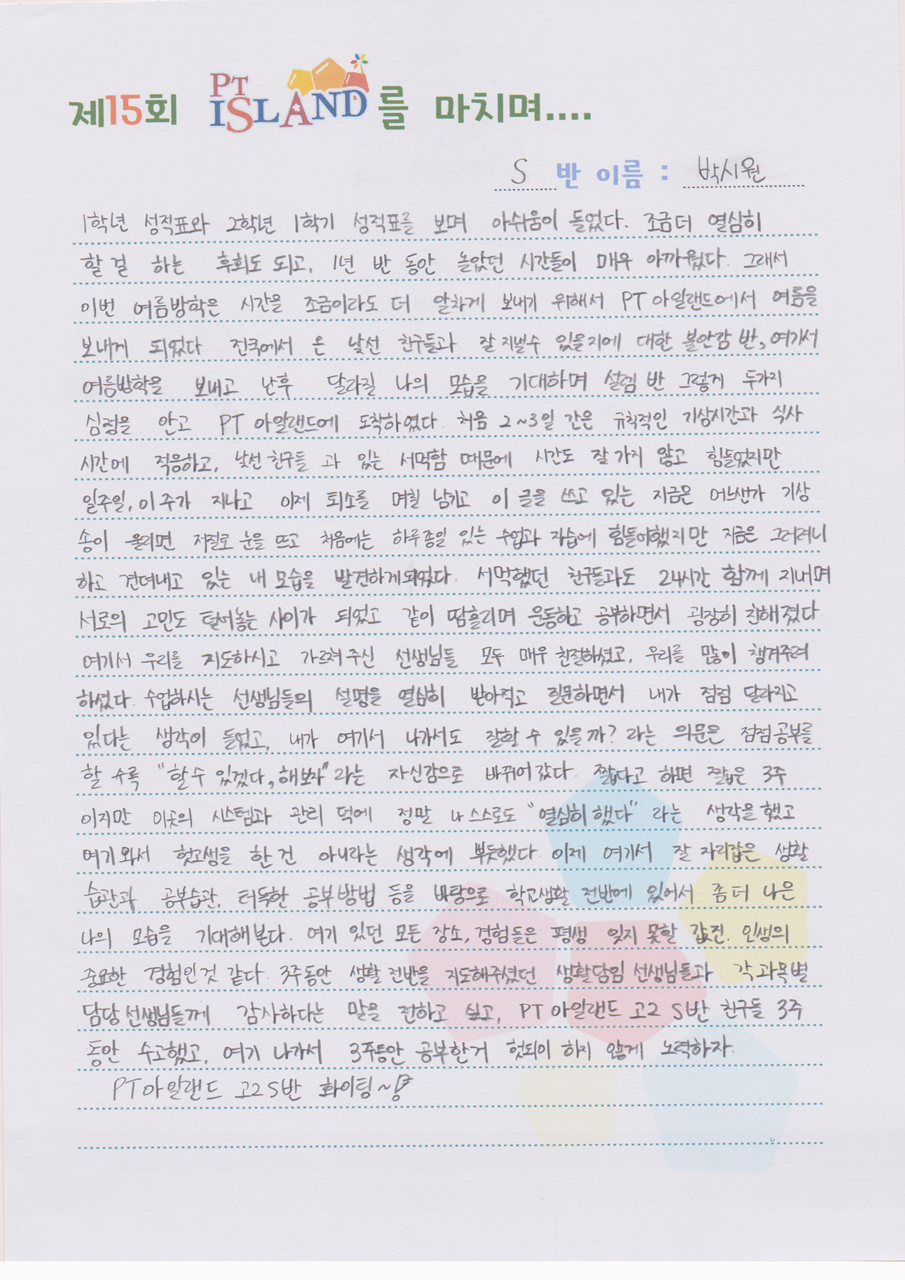 제15회 PT ISLAND를 마치며....
S 반 이름 : 박시원
1학년 성적표와 2학년 1학기 성적표를 보며 아쉬움이 들었다. 조금 더 열심히
할 걸 하는 후회도 되고, 1년 반 동안 놀았던 시간들이 매우 아까웠다. 그래서
이번 여름방학은 시간을 조금이라도 더 알차게 보내기 위해서 PT 아일랜드에서 여름을
보내게 되었다 전국에서 온 낯선 친구들과 잘 지낼수 있을지에 대한 불안감 반, 여기서
여름방학을 보내고 난후 달라질 나의 모습을 기대하며 설렘 반 그렇게 두가지
심정을 안고 PT 아일랜드에 도착하였다. 처음 2~3일 간은 규칙적인 기상시간과 식사
시간에 적응하고, 낯선 친구들 과 있는 서먹함 때문에 시간도 잘 가지 않고 힘들었지만
일주일, 이 주가 지나고 이제 퇴소를 며칠 남기고 이 글을 쓰고 있는 지금은 어느샌가 기상
송이 울리면 저절로 눈을 뜨고 처음에는 하루종일 있는 수업과 자습에 힘들어했지만 지금은 그러려니
하고 견뎌내고 있는 내 모습을 발견하게되었다. 서먹했던 친구들과도 24시간 함께 지내며
서로의 고민도 털어놓는 사이가 되었고 같이 땀흘리며 운동하고 공부하면서 굉장히 친해졌다
여기서 우리를 지도하시고 가르쳐 주신 선생님들 모두 매우 친절하셨고, 우리를 많이 챙겨주려
하셨다. 수업하시는 선생님들의 설명을 열심히 받아적고 질문하면서 내가 점점 달라지고
있다는 생각이 들었고, 내가 여기서 나가서도 잘할 수 있을까? 라는 의문은 점점 공부를
할 수록 "할 수 있겠다, 해보자" 라는 자신감으로 바뀌어 갔다. 짧다고 하면 짧은 3주
이지만 이곳의 시스템과 관리 덕에 정말 나 스스로도 "열심히 했다" 라는 생각을 했고
여기 와서 헛고생을 한 건 아니라는 생각에 뿌듯했다. 이제 여기서 잘 자리잡은 생활
습관과 공부습관, 터득한 공부방법 등을 바탕으로 학교생활 전반에 있어서 좀 더 나은
나의 모습을 기대해본다. 여기 있던 모든 장소, 경험들은 평생 잊지 못할 값진 인생의
중요한 경험인 것 같다. 3주동안 생활 전반을 지도해주셨던 생활담임 선생님들과 각 과목별
담당 선생님들께 감사하다는 말을 전하고 싶고, PT 아일랜드 고2 S반 친구들 3주
동안 수고했고, 여기 나가서 3주동안 공부한거 헛되이 하지 않게 노력하자.
PT 아일랜드 고2 S반 화이팅~!